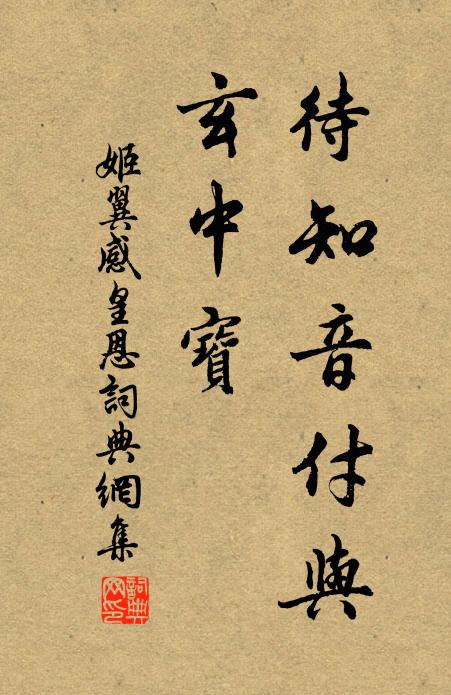 待知音付與
玄中寶
姬翼感皇恩詞典網集
詞典网印